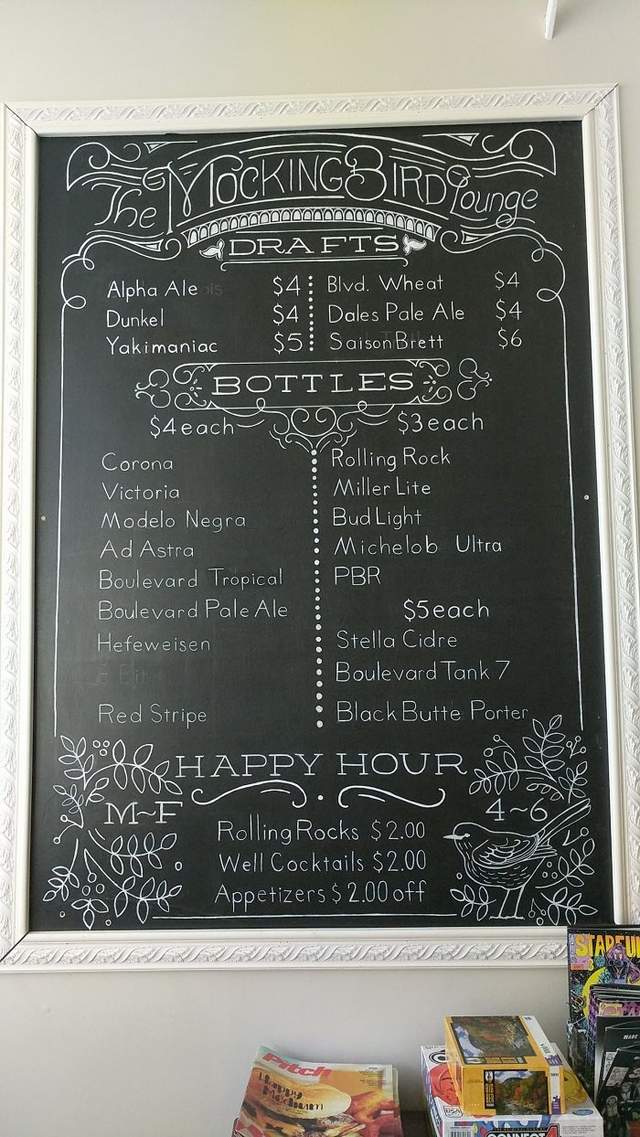 The MockingBird Lounge
DRAFTS
Alpha Ale $4
Dunkel $4
Yakimaniac $5
Blvd. Wheat $4
Dales Pale Ale $4
Saison Brett $6
BOTTLES
$4 each
Corona
Victoria
Modelo Negra
Ad Astra
Boulevard Tropical
Boulevard Pale Ale
Hefeweisen
Red Stripe
$3 each
Rolling Rock
Miller Lite
Bud Light
Michelob Ultra
PBR
$5 each
Stella Cidre
Boulevard Tank 7
Black Butte Porter
HAPPY HOUR
M~F 4~6
Rolling Rocks $2.00
Well Cocktails $2.00
Appetizers $2.00 off
Pitch
Happy
USA
CONNECT